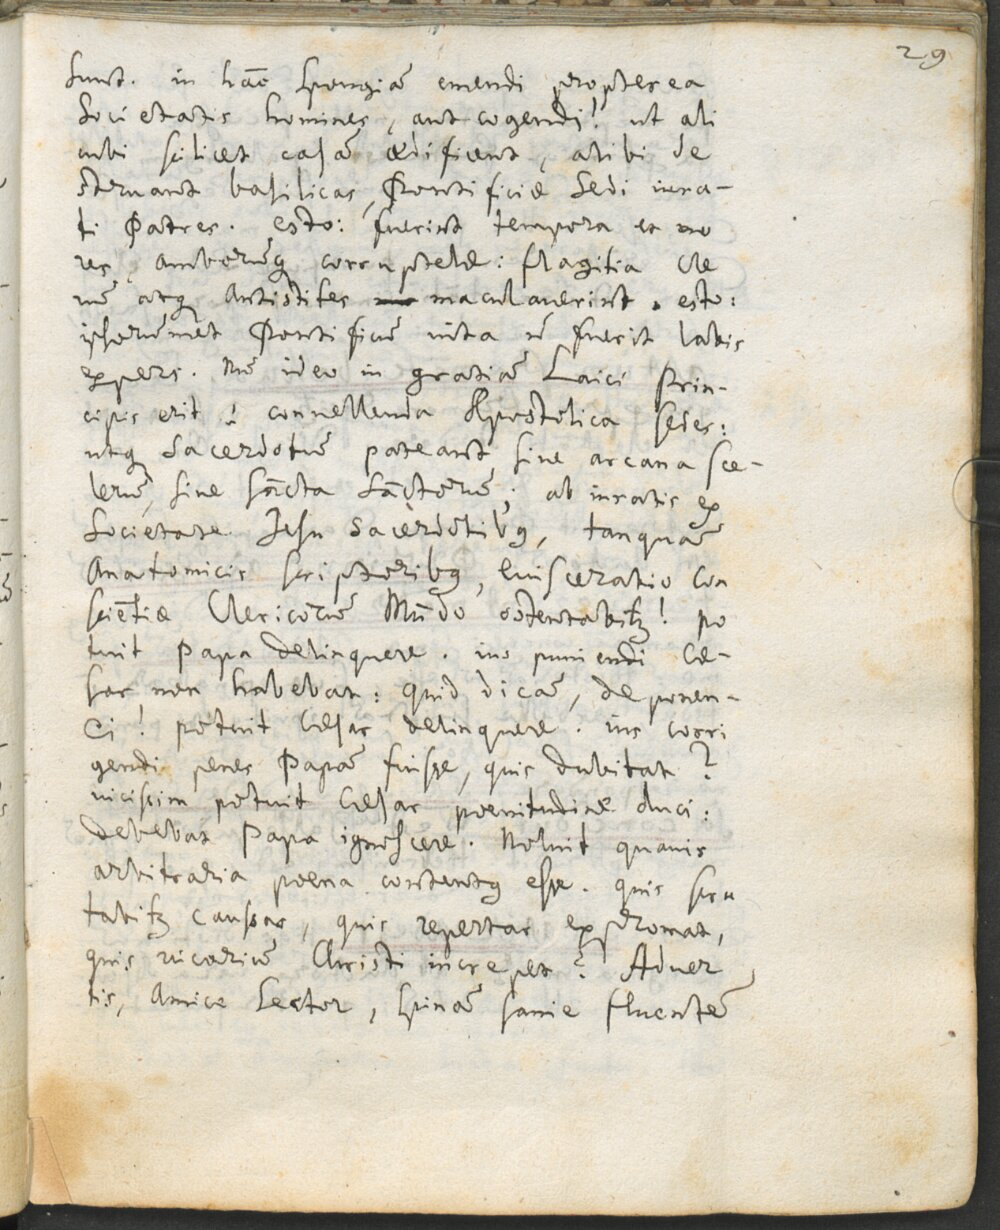 29
sunt. in hāc spongiā emendi propterea
Societatis homines, aut cogendi! ut ali
cubi scilicet casā ædificent, alibi de
struant basilicas, Pontificiæ Sedi iura-
ti Patres. esto: fuerint tempora et mo
res, amborūq corruptelæ: flagitia Cle
rū atq Antistites maculaverint. esto:
ipsorūmet Pontificū vita nō fuerit labis
expers. Nū ideo in gratiā Laici Prin-
cipis erit! convellenda Apostolica Sedes:
utq Sacerdotū pateant sive arcana sce-
lerū, sive sācta Sāctorū; ab iuratis ex
Societate Jesu Sacerdotibꝫ, tanquā
Anatomicis scriptoribꝫ, Euisceratio con
sciētiæ Clericorū Mūdo ostentabitꝫ! po
tuit Papa delinquere. ius puniendi Cæ-
sar non habebat: quid dicā, deponen-
di! potuit Cæsar delinquere. ius corri
gendi penes Papā fuisse, quis dubitat?
vicissim potuit Cæsar poenitudine duci:
debebat Papa ignoscere. Noluit quāvis
arbitraria poena contentꝫ esse. quis scru
tabitꝫ caussas, quis repertas expromat,
quis vicariū Christi increpet? Adver
tis, Amice Lector, spinā sanie fluentē